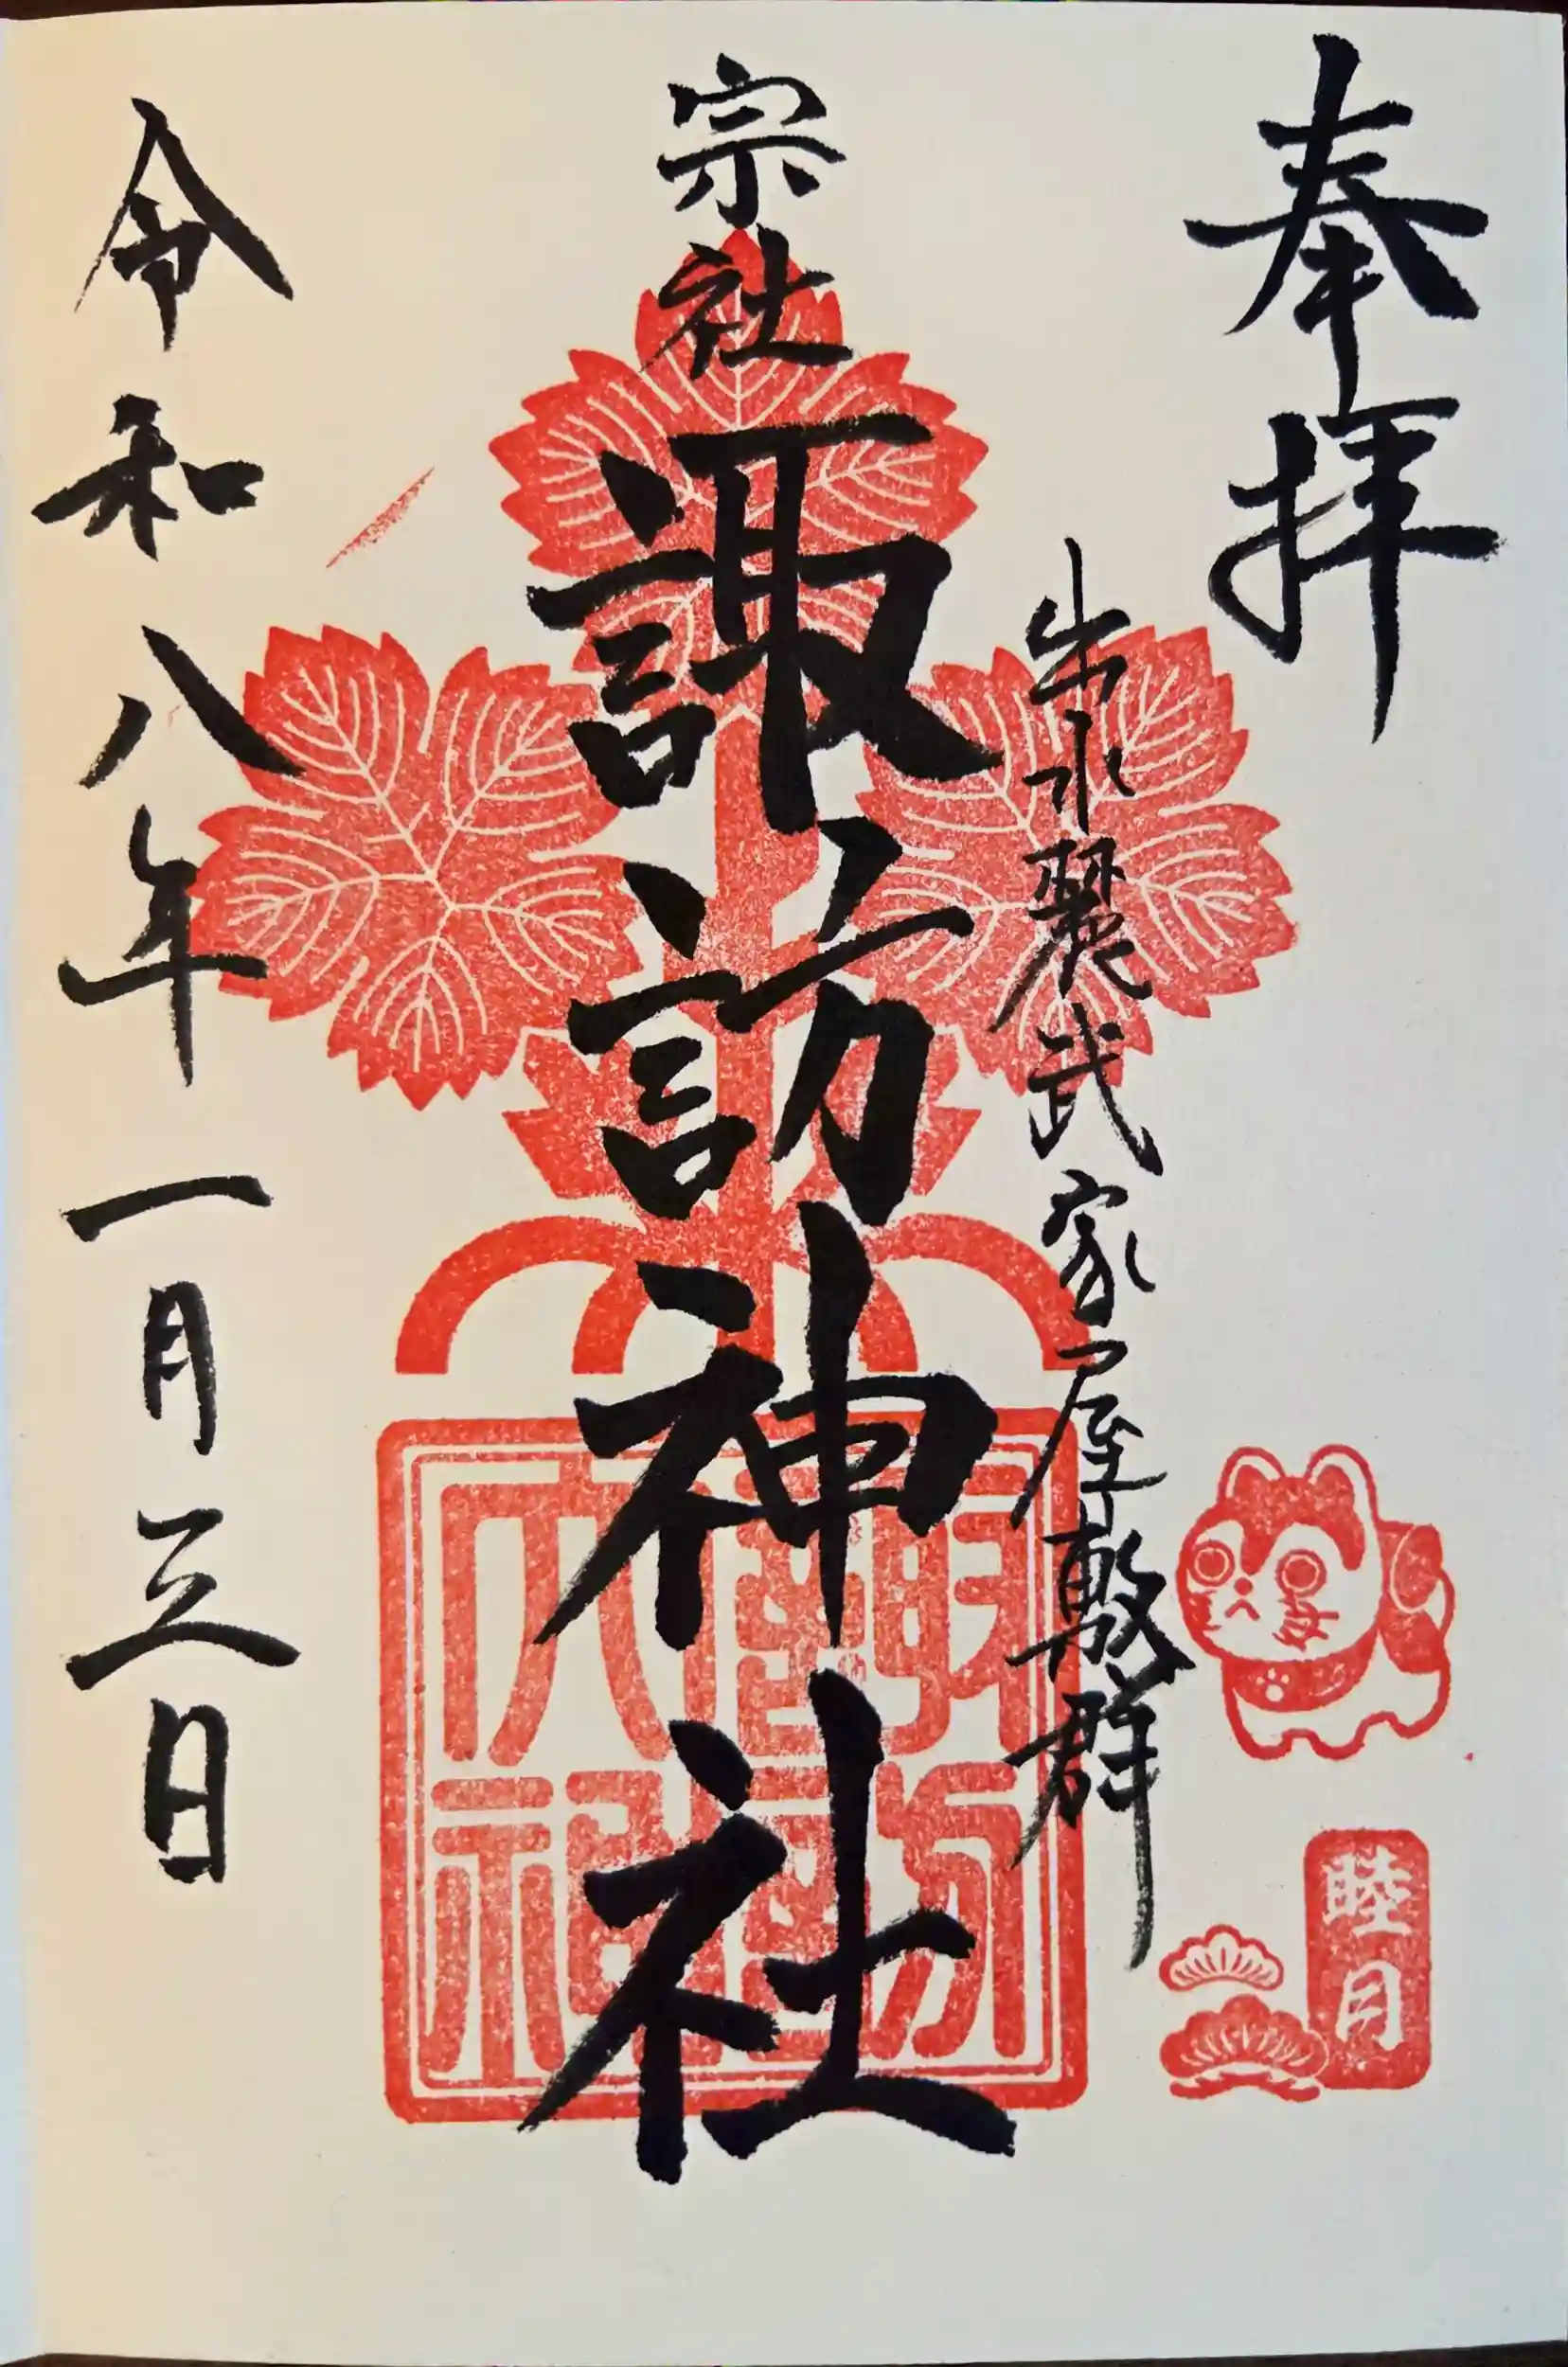 奉拝
睦月
出水麓武家屋敷群
宗社
諏訪神社
令和八年一月三日